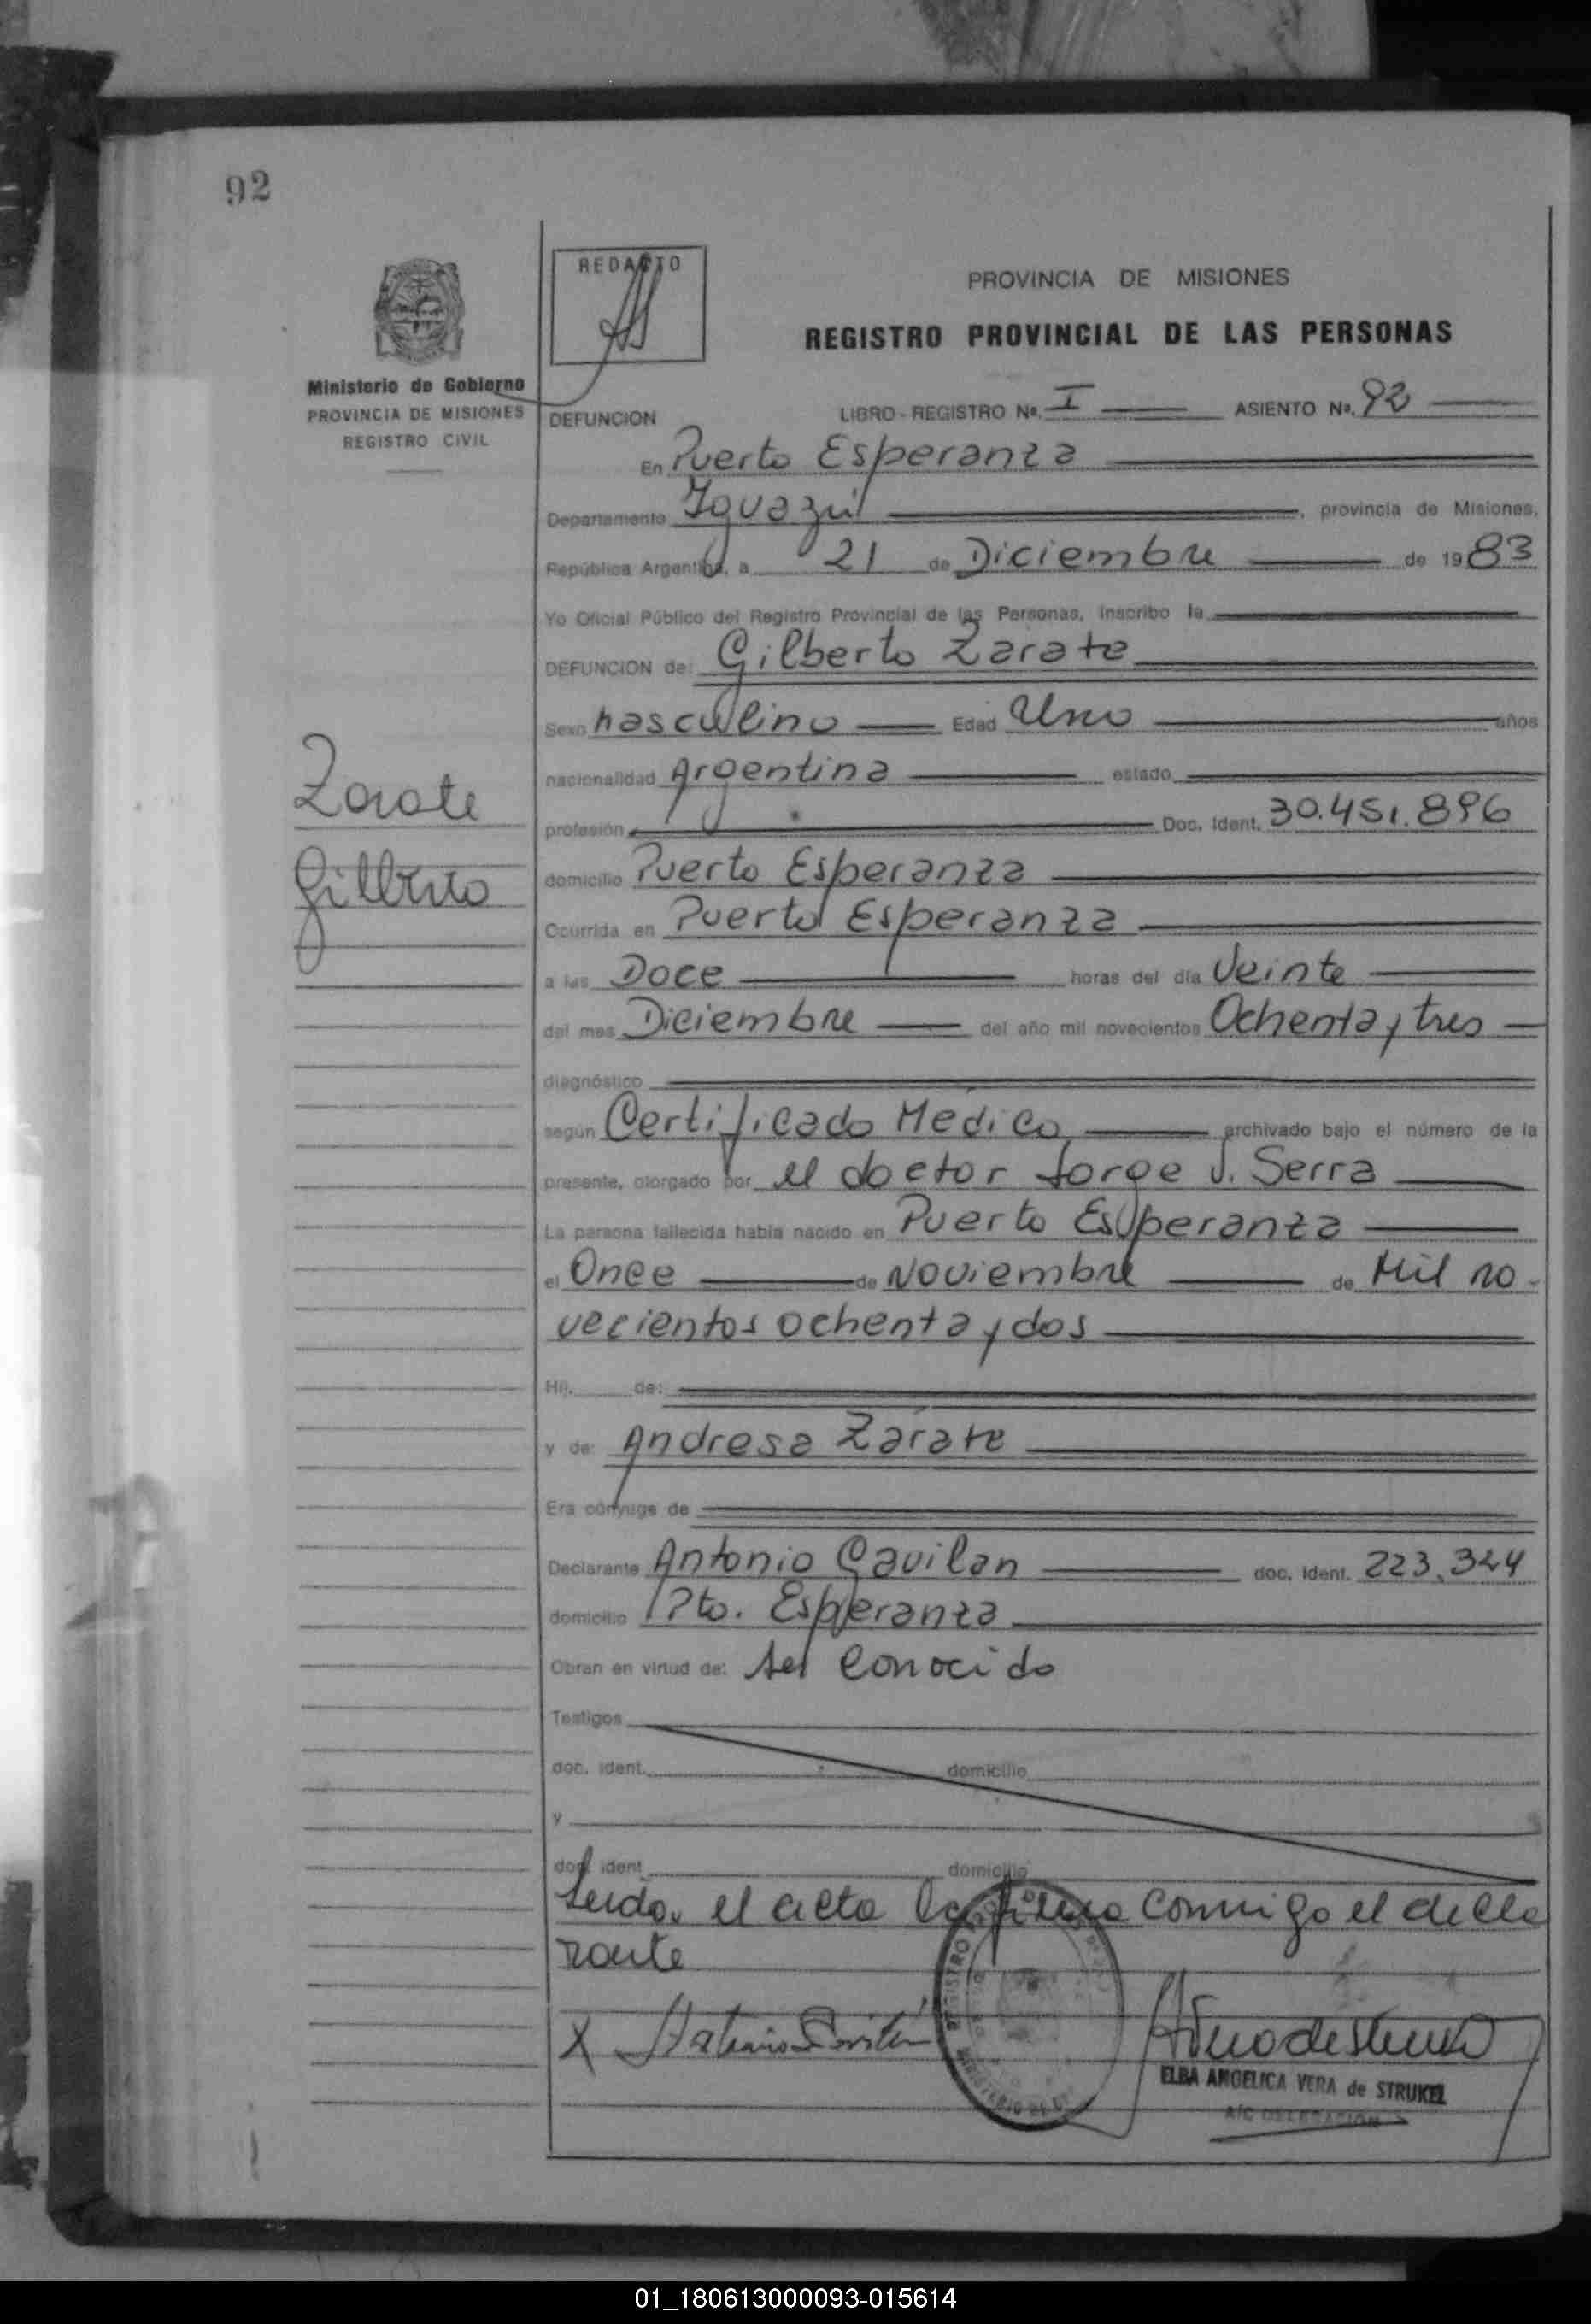 92
REDACTO
PROVINCIA DE MISIONES
REGISTRO PROVINCIAL DE LAS PERSONAS
Ministerio de Gobierno
PROVINCIA DE MISIONES
REGISTRO CIVIL
DEFUNCION LIBRO - REGISTRO Nº. I ASIENTO Nº. 92
En Puerto Esperanza
Departamento Iguazú, provincia de Misiones,
República Argentina, a 21 de Diciembre de 1983
Yo Oficial Público del Registro Provincial de las Personas, inscribo la
DEFUNCION de: Gilberto Zarate
Sexo masculino Edad Uno años
Zarate
nacionalidad Argentina estado
profesión Doc. Ident. 30.451.896
Gilberto
domicilio Puerto Esperanza
Ocurrida en Puerto Esperanza
a las Doce horas del día Veinte
del mes Diciembre del año mil novecientos Ochenta y tres
diagnóstico
según Certificado Médico archivado bajo el número de la
presente, otorgado por el doctor Jorge J. Serra
La persona fallecida había nacido en Puerto Esperanza
el Once de Noviembre de Mil no-
vecientos ochenta y dos
Hij. de:
y de: Andresa Zárate
Era cónyuge de
Declarante Antonio Gavilan doc. Ident. 223.324
domicilio Pto. Esperanza
Obran en virtud de: ser conocido
Testigos
doc. ident. domicilio
y
doc. ident. domicilio
Leida el acta la firma conmigo el decla
rante
X Antonio Gavilán
ELBA ANGELICA VERA de STRUKEL
A/C DELEGACION
01_180613000093-015614